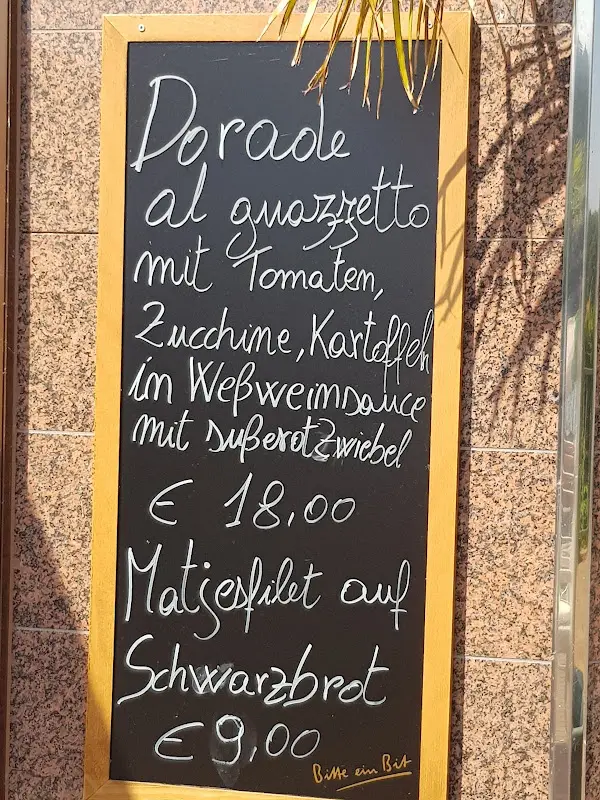 Dorade
al guazzetto
mit Tomaten,
Zucchine, Kartoffeln
in Weßweinsauce
mit sußerotZwiebel
€ 18,00
Matjesfilet auf
Schwarzbrot
€ 9,00
Bitte ein Bit